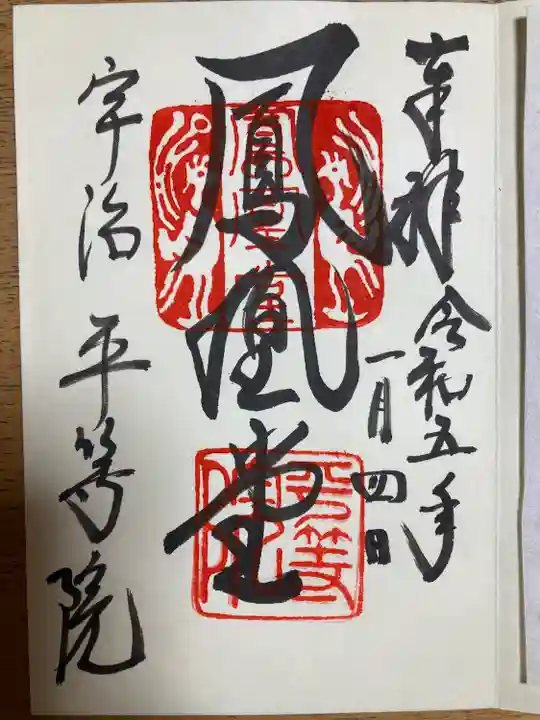 奉拝
令和五年
一月四日
鳳凰堂
鳳凰堂
平等院
宇治 平等院